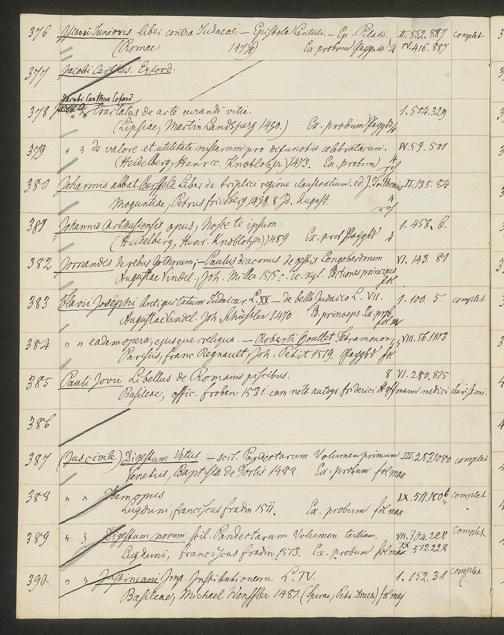 376 Isidori Junioris liber contra Judaeos. – Epistola Lentuli. – Ep. Pilati. II. 552.887 complet
(Romae 147) Ex. probum 4 IV. 416.887
377 Jacobi Carthus. Erford.
Jacobi Carthus Erford
378 " " Tractatus de arte curandi vitia. 1.524.329
(Lipsiae, Martin Landsperg 1490.) Ex. probum 4
379 " " de valore et utilitate missarum pro defunctis celebratarum. IV. 59.501
(Heidelberg, Henric. Knoblotzer) 1473. Ex. probum 4
380 Johannis abbat. Liber de triplici regione claustralium. ed. J. Trithemius II. 135.54
Moguntiae, Petrus Friedberg 1498. 8 Id. August. 4
381 Johannis opus, Nosce te ipsum. 1. 458. 6.
(Heidelberg, Henr. Knoblotzer) 1489 Ex. prob 4
382 Jornandes de rebus Gothorum; – Paulus diaconus de gestis Longobardorum VI. 143. 81
Augustae Vindel, Joh. Miller 1515. Editiones principes
fol
383 Flavii Josephi Antiquitatum Judaicar. L. XX – de bello Judaico L. VII. 1. 100 5 complet
Augustae Vindel Joh. Schüssler 1470 Ed. princeps. Ex. prob.
fol m
384 " " eadem opera, ejusque reliqua. – Roberti Goullet Tetramonon, VII. 56. 1103
Parisiis, Franc. Regnault, Joh. Petit 1519. fol
385 Pauli Jovii Libellus de Romanis piscibus. 8 VI. 280.815
Basileae, offic. Froben 1531. cum nota autogr. Friderici Hoffmann medici clarissimi.
386
387 (Jus civile) Digestum Vetus. – scil. Pandectarum Volumen primum III. 283.1080 complet
Venetiis, Baptista de Tortis 1488 Ex. probum fol max
388 " " idem opus IX. 511.1806 complet
Lugduni, franciscus fradin 1511. Ex. probum fol max
389 " " Digestum novum scil. Pandectarum Volumen tertium. VII. 304.228 complet
Lugduni, franciscus fradin, 1513. Ex. probum fol max IX. 512.228
390 " " Justiniani Imp. Institutionem L. IV. 1. 152. 31 complet
Basileae, Michael Wenssler 1487. (Spirae, Petr. Drach) fol maj